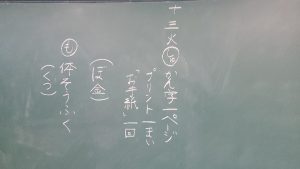 十三火
し
かん字一ページ
プリント一まい
「お手紙」一回
(ぼ金)
も
体そうふく
(くつ)